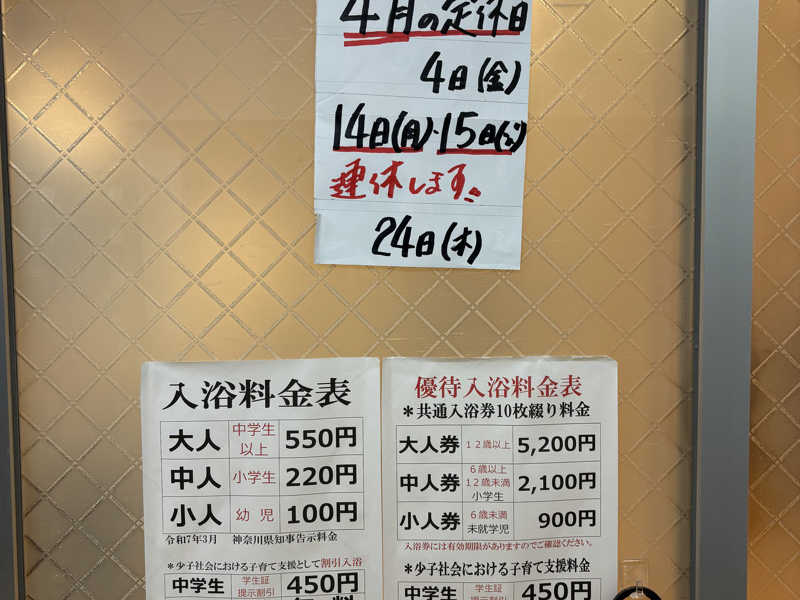 4月の定休日
4日(金)
14日(月)・15日(火)
連休します。
24日(木)
入浴料金表
大人 中学生以上 550円
中人 小学生 220円
小人 幼児 100円
令和7年3月 神奈川県知事告示料金
*少子社会における子育て支援として割引入浴
中学生 学生証提示割引 450円
優待入浴料金表
*共通入浴券10枚綴り料金
大人券 12歳以上 5,200円
中人券 6歳以上12歳未満小学生 2,100円
小人券 6歳未満未就学児 900円
入浴券には有効期限がありますのでご確認ください。
*少子社会における子育て支援料金
中学生 学生証提示割引 450円